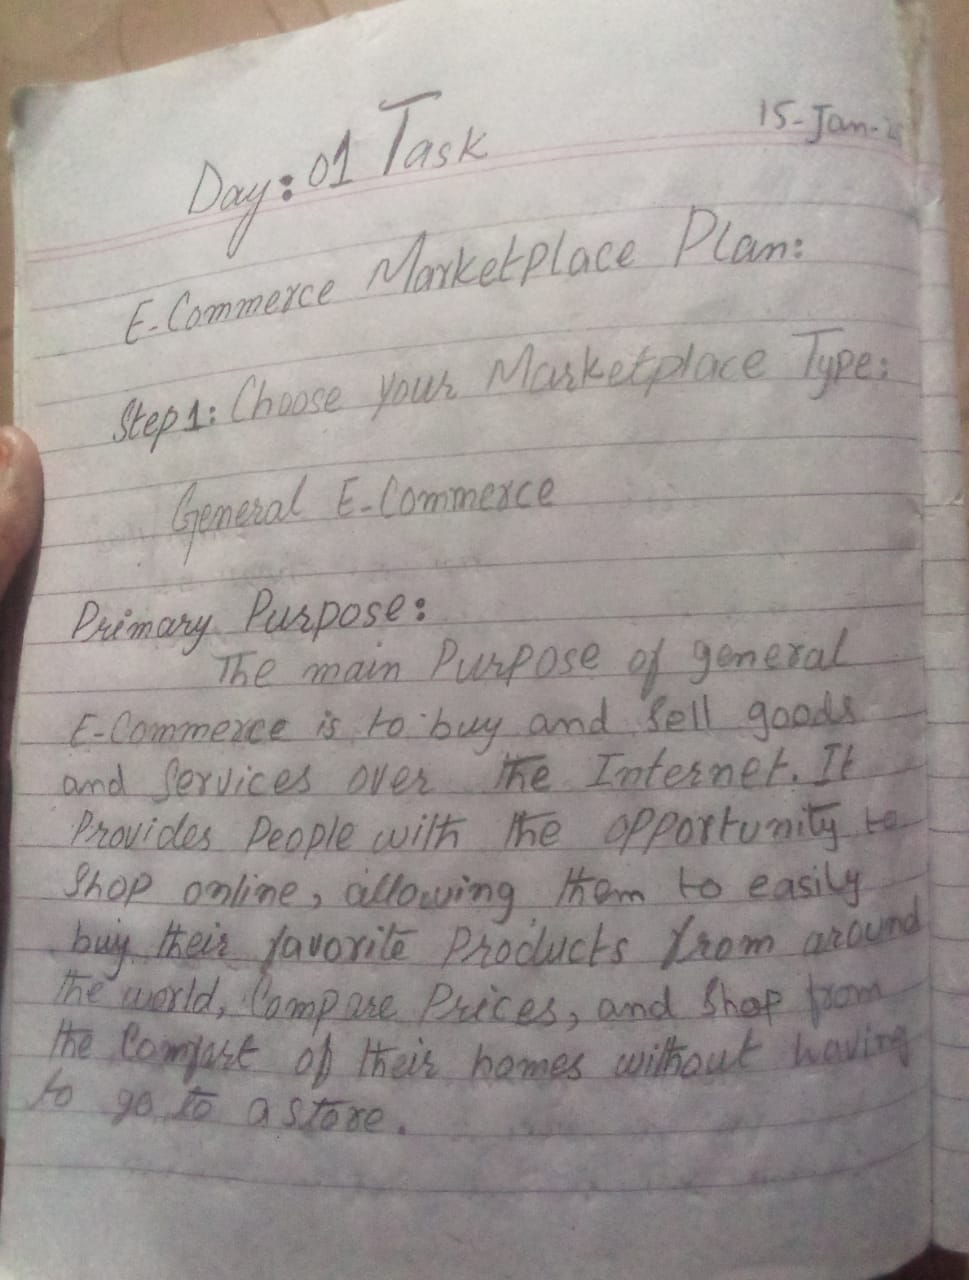 15-Jan-2
Day: 01 Task
E-Commerce Marketplace Plan:
Step 1: Choose your Marketplace Type:
General E-Commerce
Primary Purpose:
The main Purpose of general
E-Commerce is to buy and sell goods
and Services over the Internet. It
Provides People with the opportunity to
Shop online, allowing them to easily
buy their favorite Products from around
the world, Compare Prices, and Shop from
the Comfort of their homes without having
to go to a store.